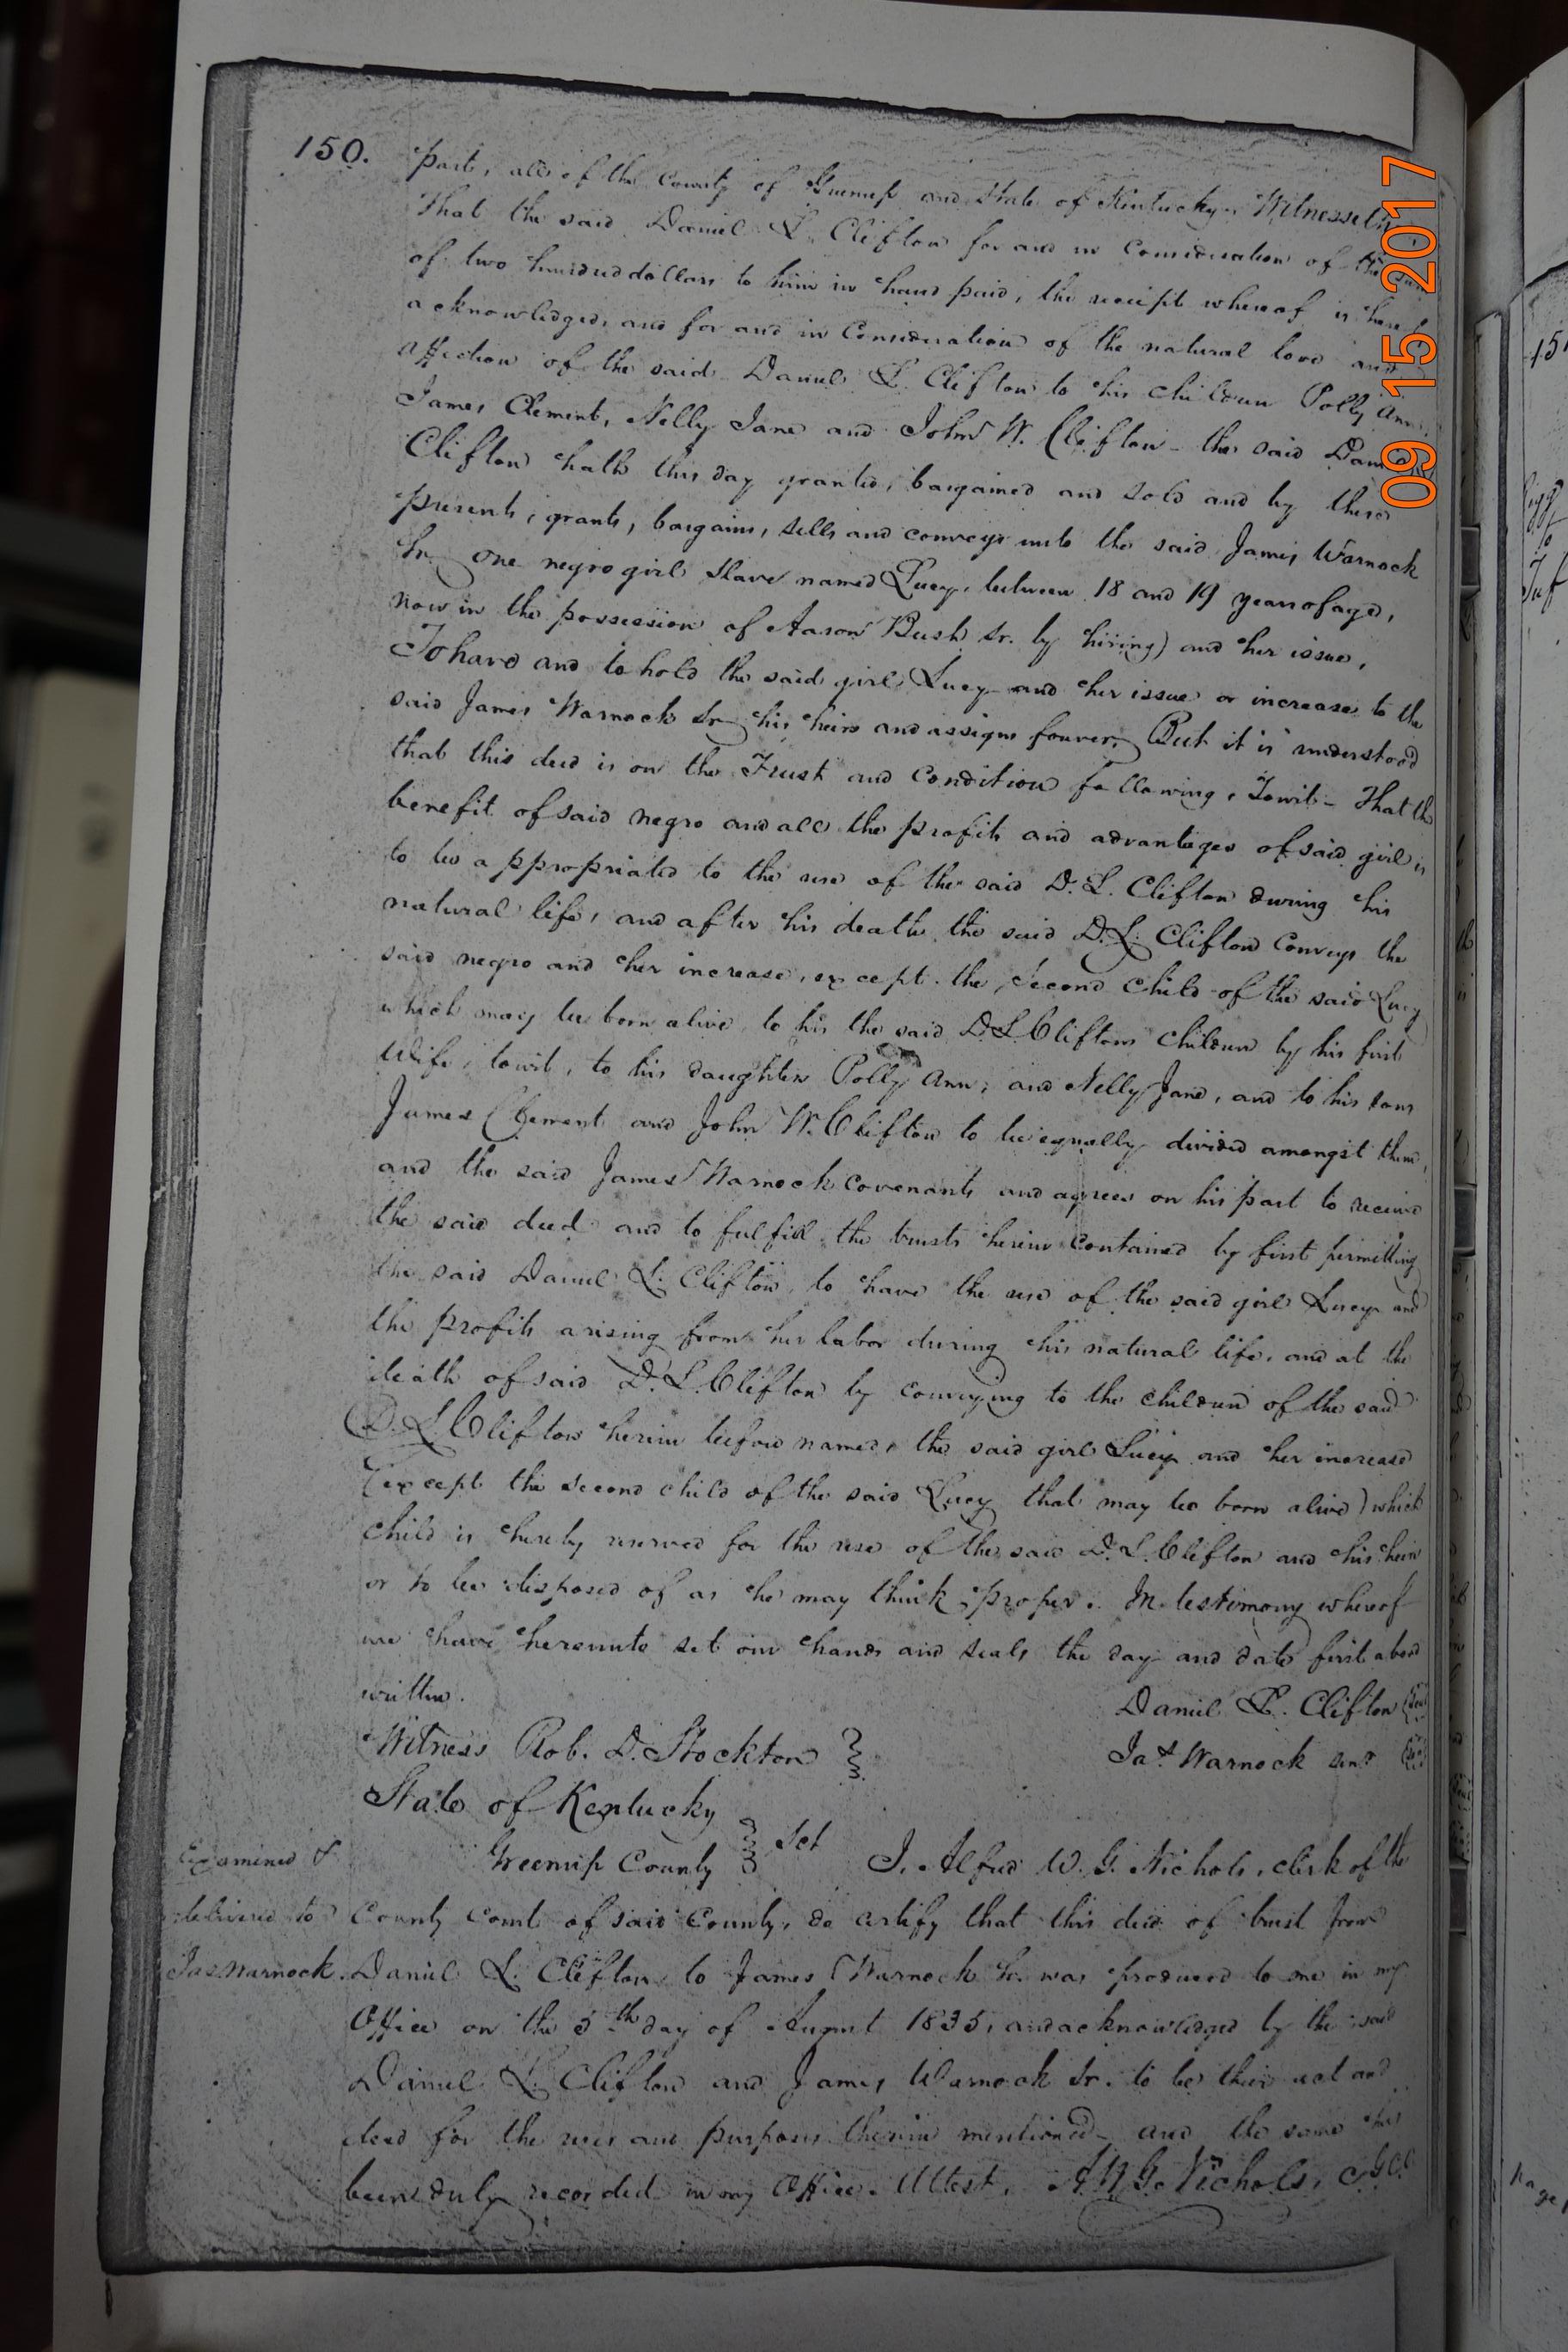 150.
part, all of the County of Greenup and State of Kentucky. Witnesseth,
That the said Daniel L. Clifton for and in Consideration of the sum
of two hundred dollars to him in hand paid, the receipt whereof is hereby
acknowledged, and for and in Consideration of the natural love and
affection of the said Daniel L. Clifton to his children Polly Ann,
James Clement, Nelly Jane and John W. Clifton - the said Daniel L.
Clifton hath this day granted, bargained and sold and by these
presents, grants, bargains, sells and conveys unto the said James Warnock
Sr. one negro girl slave named Lucy, between 18 and 19 years of age,
now in the possession of Aaron Bush Sr. by hiring) and her issue,
To have and to hold the said girl Lucy and her issue or increase to the
said James Warnock Sr. his heirs and assigns forever. But it is understood
that this deed is on the Trust and Condition following, Towit - That the
benefit of said negro and all the profits and advantages of said girl, is
to be appropriated to the use of the said D. L. Clifton during his
natural life, and after his death the said D. L. Clifton Conveys the
said negro and her increase, except the second child of the said Lucy
which may be born alive to his the said D L Cliftons children by his first
wife, towit, to his daughters Polly Ann, and Nelly Jane, and to his sons
James Clement and John W. Clifton to be equally divided amongst them,
and the said James Warnock covenants and agrees on his part to receive
the said deed and to fulfill the trusts herein contained by first permitting
the said Daniel L. Clifton, to have the use of the said girl Lucy and
the profits arising from her labor during his natural life, and at the
death of said D. L. Clifton by conveying to the children of the said
D. L. Clifton herein before named, the said girl Lucy and her increase
(except the second child of the said Lucy that may be born alive) which
child is hereby reserved for the use of the said D. L. Clifton and his heirs
or to be disposed of as he may think proper. In testimony whereof
we have hereunto set our hands and seals the day and date first above
written.
Daniel L. Clifton (Seal)
Witness Rob. D. Stockton
Jas. Warnock senr (Seal)
State of Kentucky
Greenup County Sct I, Alfred W. G. Nichols, clerk of the
County court of said County, do certify that this deed of trust from
Daniel L. Clifton to James Warnock Sr. was produced to me in my
Office on the 5th day of August 1835, and acknowledged by the said
Daniel L. Clifton and James Warnock Sr. to be their act and
deed for the uses and purposes therein mentioned - and the same has
been duly recorded in my Office. Attest, A W G. Nichols, C.G.C.
Examined &
delivered to
Jas Warnock.
09 15 2017
151
to
page